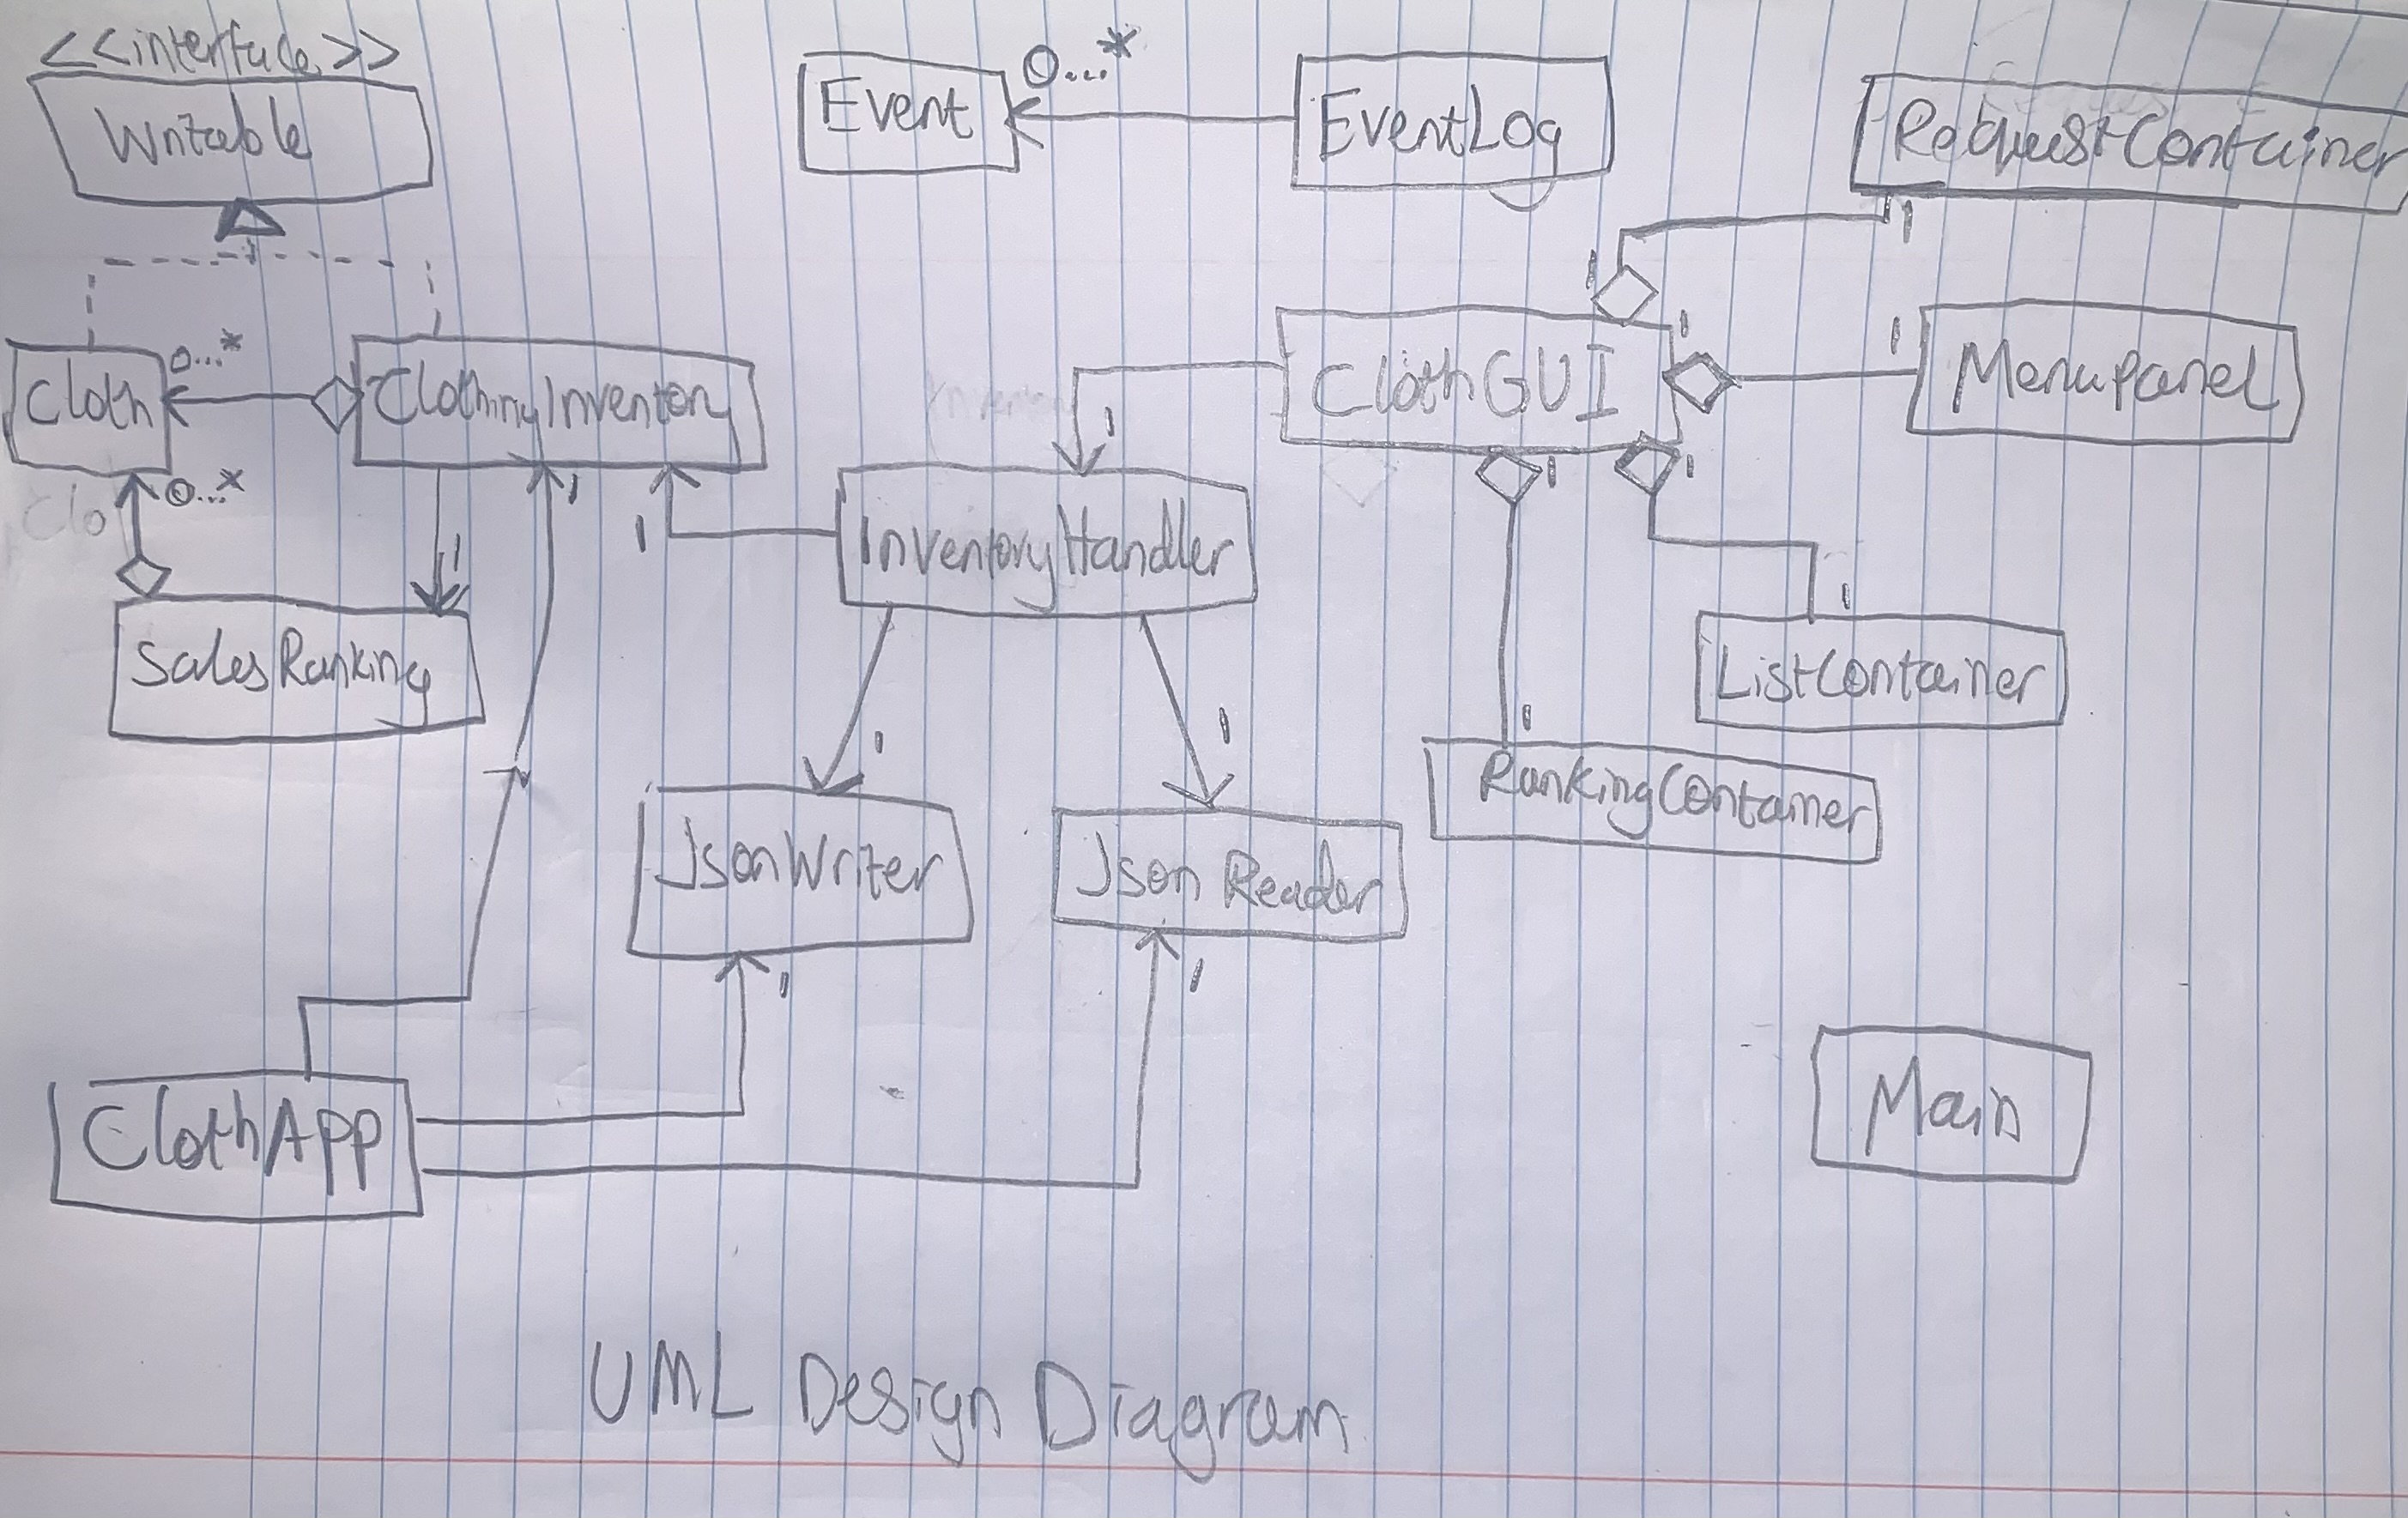 <<interface>>
Writable
Event
0...*
EventLog
RequestContainer
1
1
Cloth
0...*
ClothingInventory
ClothGUI
1
1
MenuPanel
0...*
1
1
1
1
1
1
InventoryHandler
1
SalesRanking
ListContainer
1
1
1
RankingContainer
JsonWriter
Json Reader
1
1
ClothApp
Main
UML Design Diagram